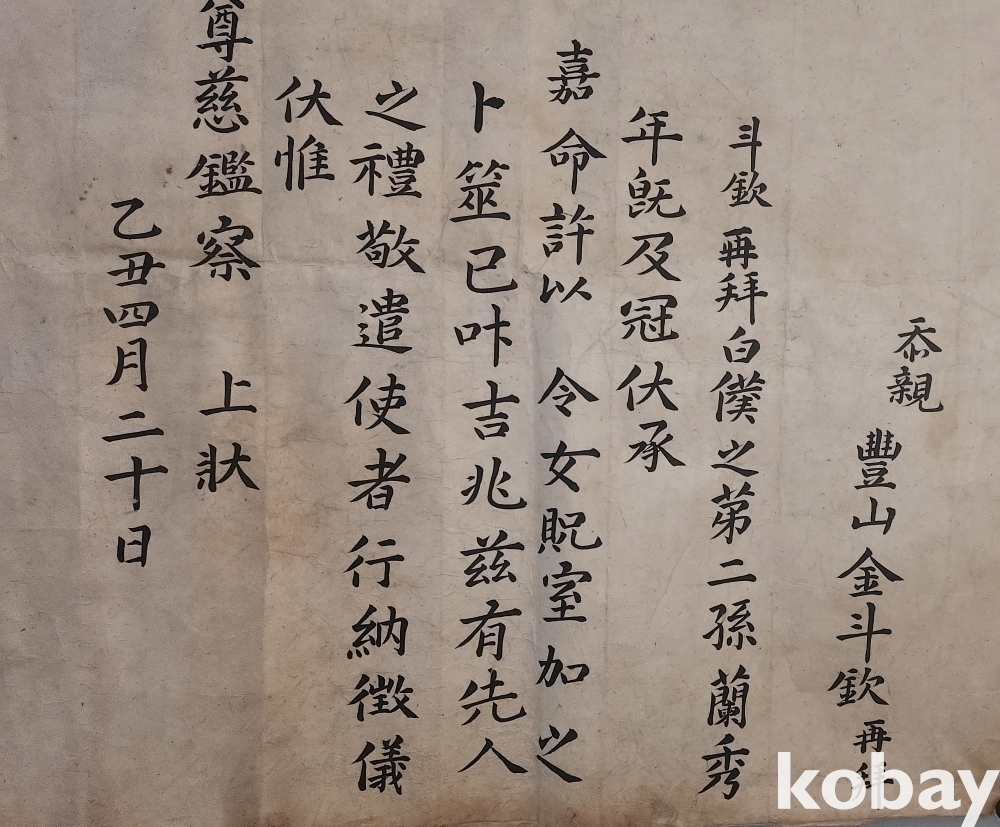 忝親
豐山金斗欽再拜
斗欽再拜白僕之第二孫蘭秀
年旣及冠伏承
嘉命許以 令女貺室加之
卜筮已叶吉兆玆有先人
之禮敬遣使者行納徵儀
伏惟
尊慈鑑察 上狀
乙丑四月二十日
kobay